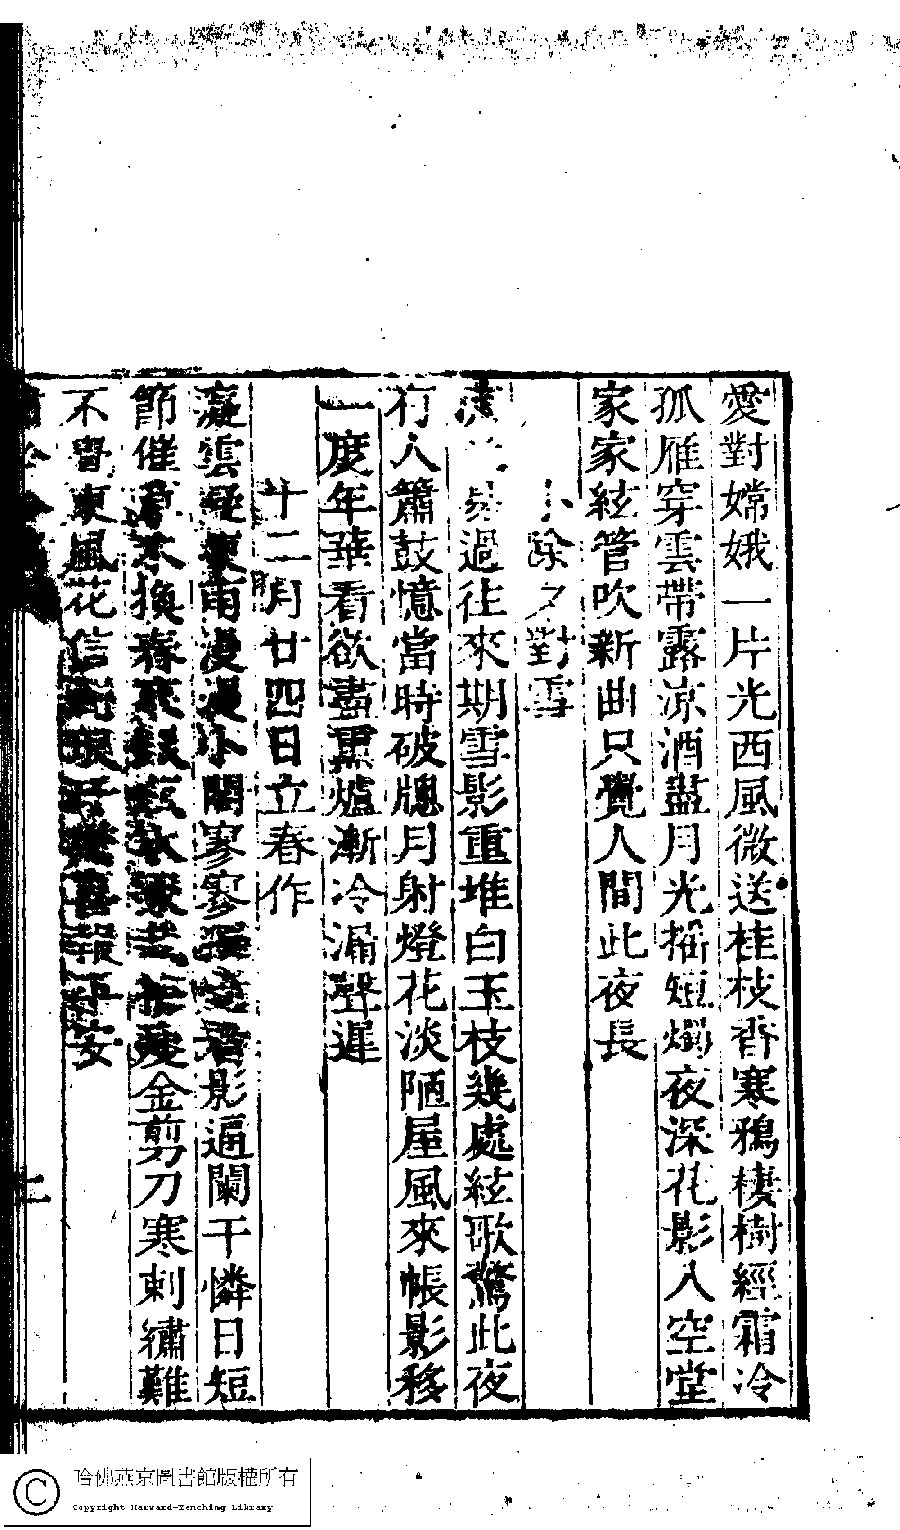 愛對嫦娥一片光西風微送桂枝香寒鴉棲樹經霜冷
孤雁穿雲帶露涼酒盡月光搖短燭夜深花影入空堂
家家絃管吹新曲只覺人間此夜長
小除夕對雪
過往來期雪影重堆白玉枝幾處絃歌驚此夜
行人簫鼓憶當時破牕月射燈花淡陋屋風來帳影移
一度年華看欲盡熏爐漸冷漏聲遲
十二月廿四日立春作
凝雲凝凍雨漫漫小閣寥寥影逼闌干憐日短
節催換春金剪刀寒刺繡難
不胃東風花信喜報平安
哈佛燕京圖書館版權所有
Copyright Harvard-Yenching Library